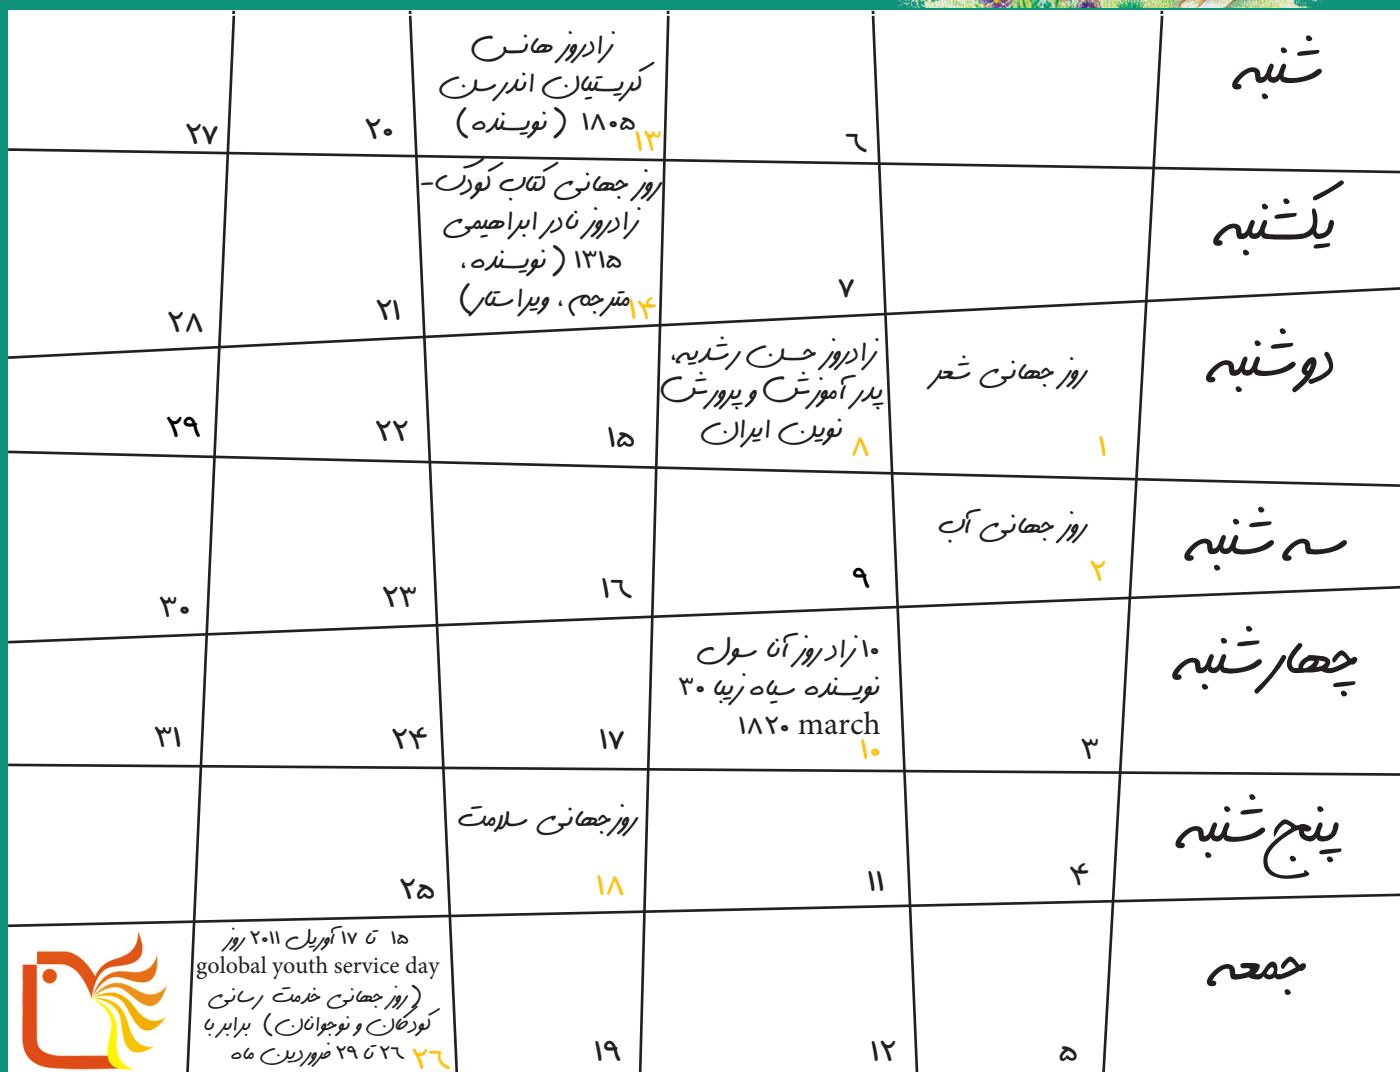 شنبه
۶
زادروز هانس
کریستیان اندرسن
۱۸۰۵ (نویسنده)
۱۳
۲۰
۲۷
یکشنبه
۷
روز جهانی کتاب کودک-
زادروز نادر ابراهیمی
۱۳۱۵ (نویسنده،
مترجم، ویراستار)
۱۴
۲۱
۲۸
دوشنبه
روز جهانی شعر
۱
زادروز حسن رشدیه،
پدر آموزش و پرورش
نوین ایران
۸
۱۵
۲۲
۲۹
سه شنبه
روز جهانی آب
۲
۹
۱۶
۲۳
۳۰
چهارشنبه
۳
۱۰ زاد روز آنا سول
نویسنده سیاه زیبا ۳۰
۱۸۲۰ march
۱۰
۱۷
۲۴
۳۱
پنج شنبه
۴
۱۱
روزجهانی سلامت
۱۸
۲۵
جمعه
۵
۱۲
۱۹
۱۵ تا ۱۷ آوریل ۲۰۱۱ روز
golobal youth service day
(روز جهانی خدمت رسانی
کودکان و نوجوانان) برابر با
۲۶ تا ۲۹ فروردین ماه
۲۶